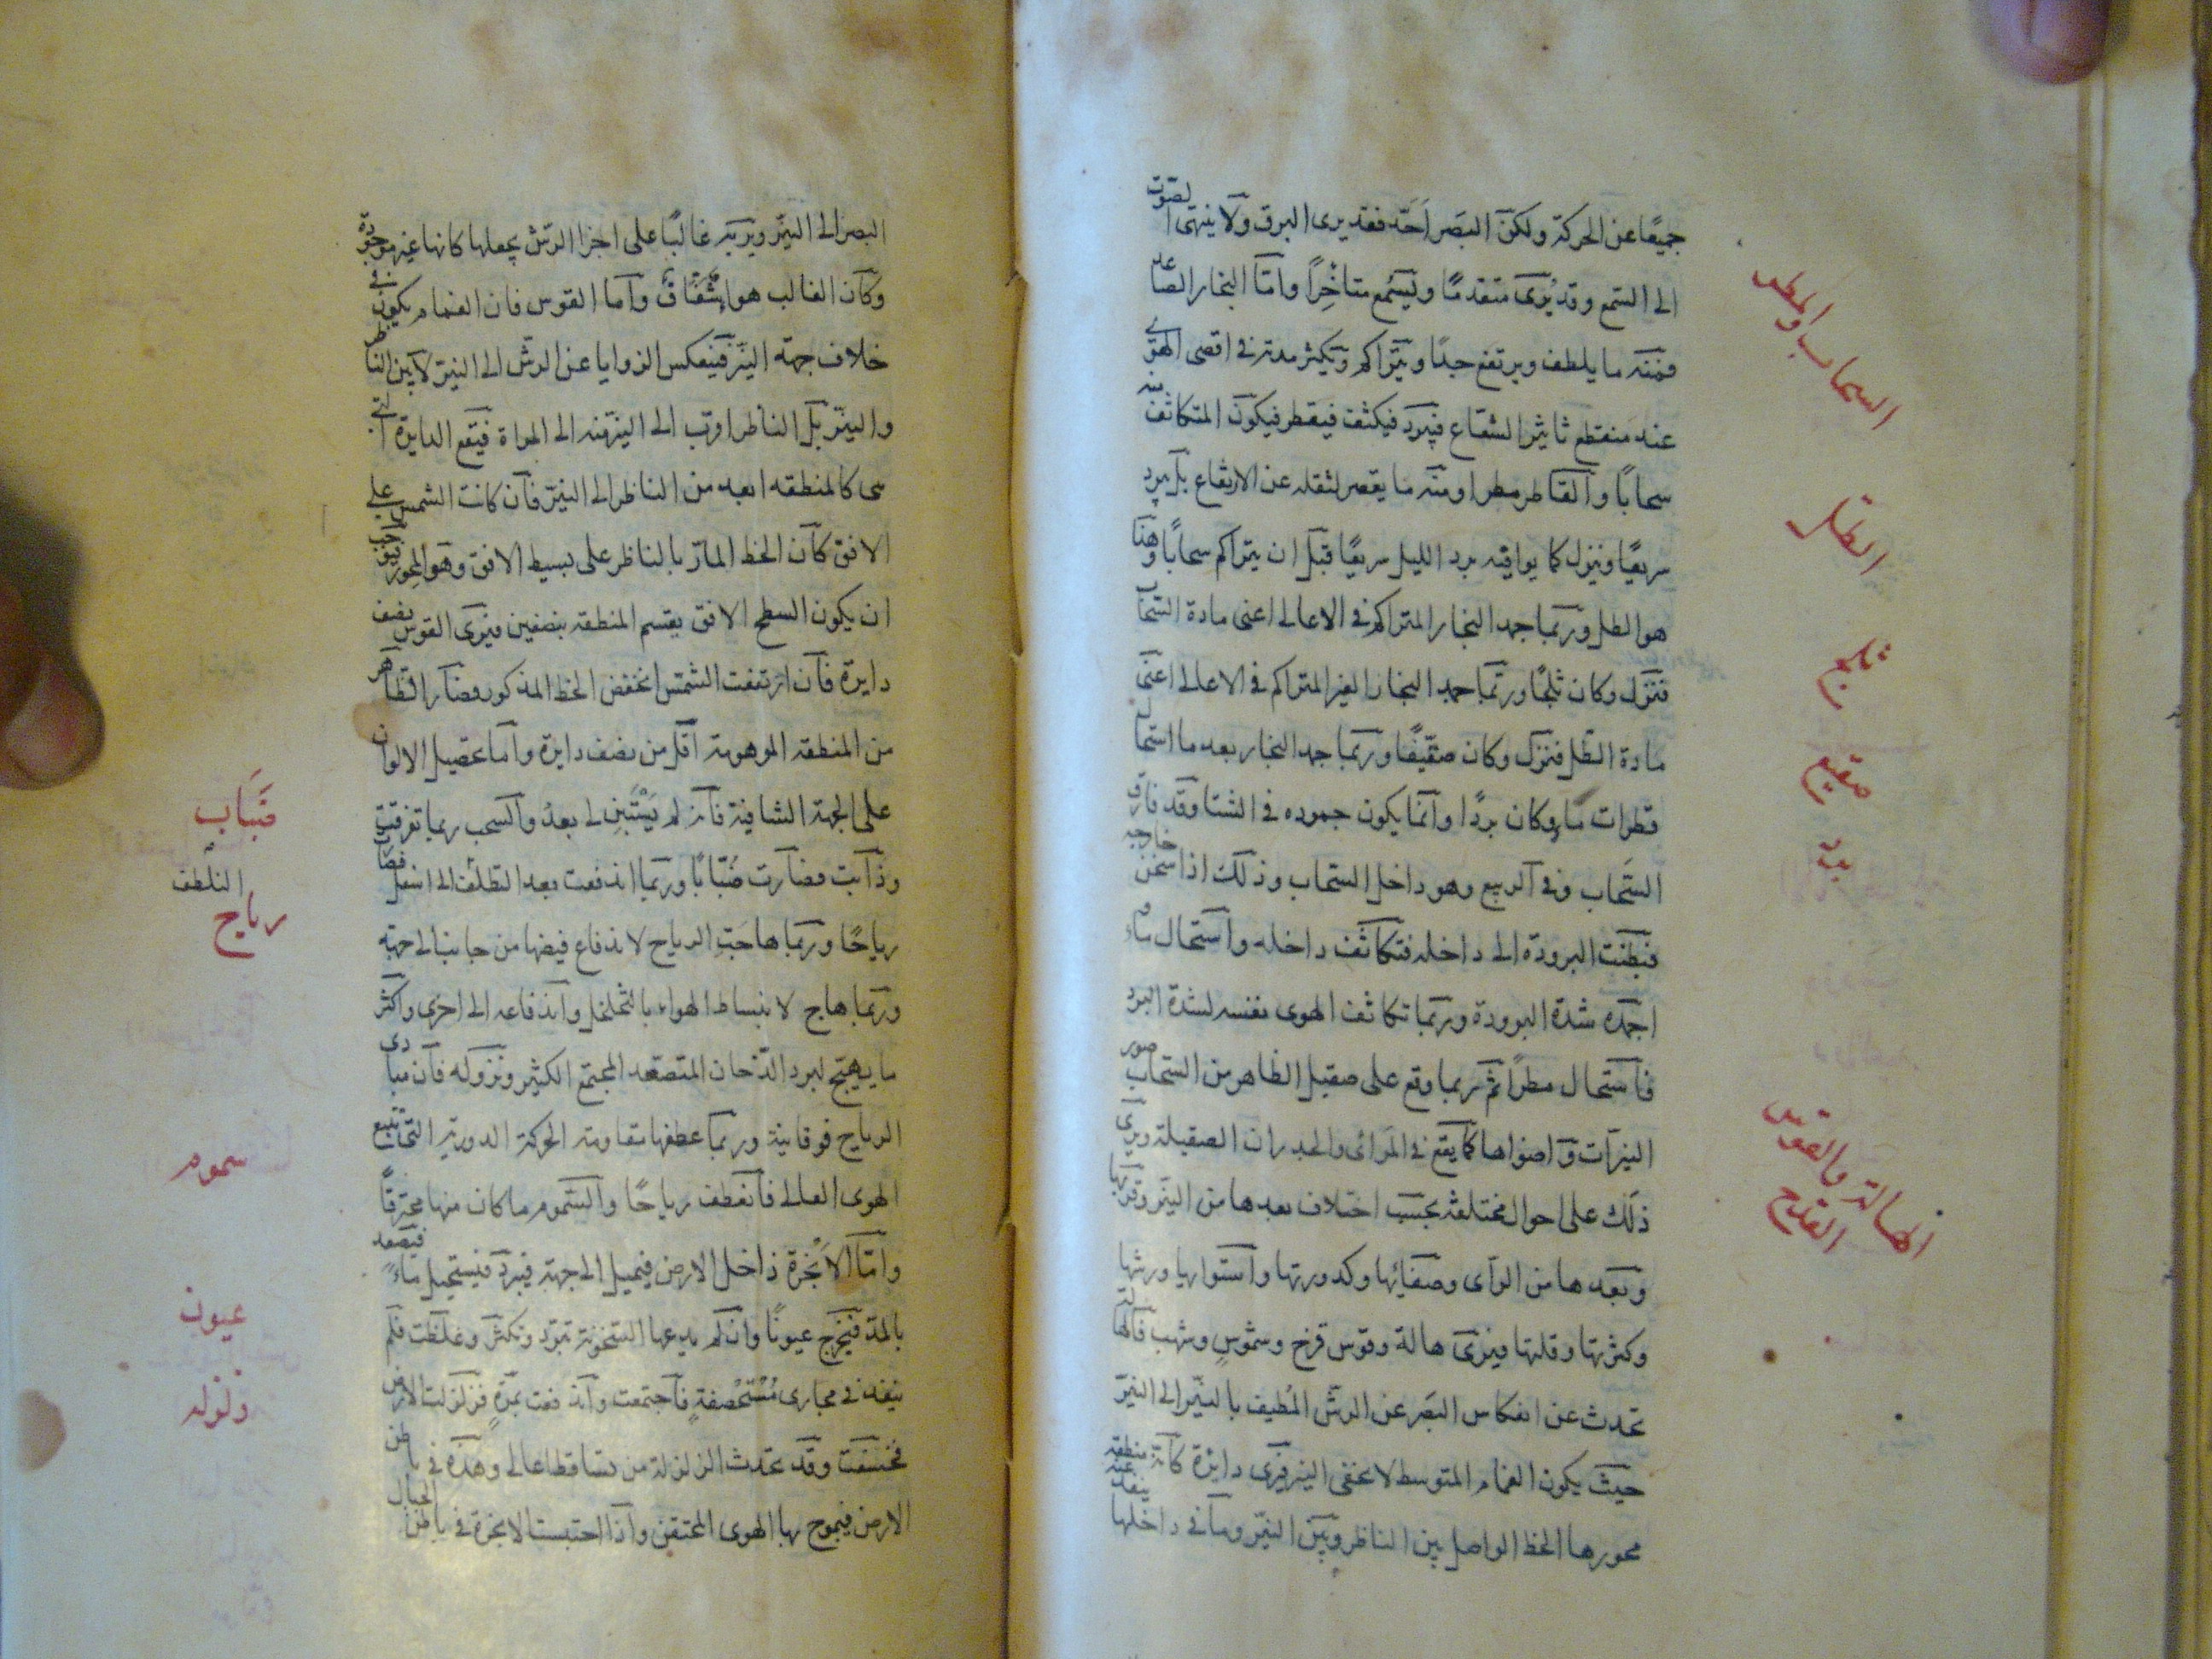 جميعًا عن الحركة ولكن البصر أحد فقد يرى البرق ولا ينتهى الصوت
الى السمع وقد يُرى متقدمًا ويُسمع متأخرًا واما البخار الصاعد
فمنه ما يلطف ويرتفع جدا ويتراكم ويكثر مدته فى اقصى الهوى
عند منقطع تاثير الشعاع فيبرد فيكثف فيقطر فيكون المتكاثف منه
سحابًا والقاطر مطرا ومنه ما يقصر لثقله عن الارتفاع بل يبرد
سريعًا وينزل كما يوافيه برد الليل سريعًا قبل ان يتراكم سحابًا وهذا
هو الطل وربما جمد البخار المتراكم فى الاعالى اعنى مادة السحاب
فنزل وكان ثلجًا وربما جمد البخار الغير المتراكم فى الاعالى اعنى
مادة الطل فنزل وكان صقيعًا وربما جمد البخار بعد ما استحال
قطرات ماء وكان بردًا وانما يكون جموده فى الشتا وقد فارق
السحاب وفى الربيع وهو داخل السحاب وذلك اذا سخن خارجه
فبطنت البرودة الى داخله فتكاثف داخله واستحال ماء و
اجمده شدة البرودة وربما تكاثف الهوى نفسه لشدة البرد
فاستحال مطرًا ثم ربما وقع على صقيل الظاهر من السحاب صور
النيرات واضواها كما يقع فى المرائى والجدران الصقيلة ويرى
ذلك على احوال مختلفة بحسب اختلاف بعدها من النير وقربها
وبعدها من الرآى وصفائها وكدورتها واستوايها ورشها
وكثرتها وقلتها فيرى هالة وقوس قزح وشموس وشهب فالهالة
تحدث عن انعكاس البصر عن الرش المُطيف بالنير الى النير
حيث يكون الغمام المتوسط لا يخفى النير فيرى دائرة كانه منطقة
محورها الخط الواصل بين الناظر وبين النير وما فى داخلها ينفذ عنه
السحاب والمطر
الطل
ثلج
صقيع
برد
الهالة والقوس
القزح
البصر الى النير ويريه غالبًا على اجزا الرش يجعلها كانها غير موجودة
وكان الغالب هوا شفاف واما القوس فان الغمام يكون فى
خلاف جهة النير فينعكس الزوايا عن الرش الى النير لا بين الناظر
والنير بل الناظر اقرب الى النير منه الى المراة فيقع الدايرة التى
هى كالمنطقه ابعد من الناظر الى النير فان كانت الشمس على
الافق كان الخط المار بالناظر على بسيط الافق وهو المحور فيجب
ان يكون السطح الافق يقسم المنطقة بنصفين فيرى القوس نصف
دايرة فان ارتفعت الشمس انخفض الخط المذكور فصار الظاهر
من المنطقه الموهومة اقل من نصف دايرة واما تحصيل الالوان
على الجهة الشافية فانه لم يستبن لى بعدُ والسحب ربما تفرقت
وذابت فصارت ضُبابًا وربما اندفعت بعد التلطف الى اسفل فصار
رياحًا وربما هاجت الرياح لاندفاع فيضها من جانب الى جهة
وربما هاج لانبساط الهواء بالتخلخل واندفاعه الى اخرى واكثر
ما يهيج لبرد الدخان المتصعد المجتمع الكثير ونزوله فان مبادى
الرياح فوقانية وربما عطفها مقاومة الحركة الدورية التى تتبع
الهوى العالى فانعطف رياحًا والسموم ما كان منها محترقًا
واما الابخرة داخل الارض فيميل الى جهة فيبرد فيستحيل ماء فيصعد
بالمد فيخرج عيونًا وان لم يدعها السخونة تبرد وتكثر وغلظت فلم
ينفذ فى مجارى مُستحصفةٍ فاجتمعت واندفعت بمرةٍ فزلزلت الارض
فخسفت وقد تحدث الزلزلة من تساقط اعالى وهذه فى باطن
الارض فيموج بها الهوى المحتقن واذا احتبست الابخرة فى باطن الجبال
ضَبَاب
التلطف
رياح
سموم
عيون
زلزله